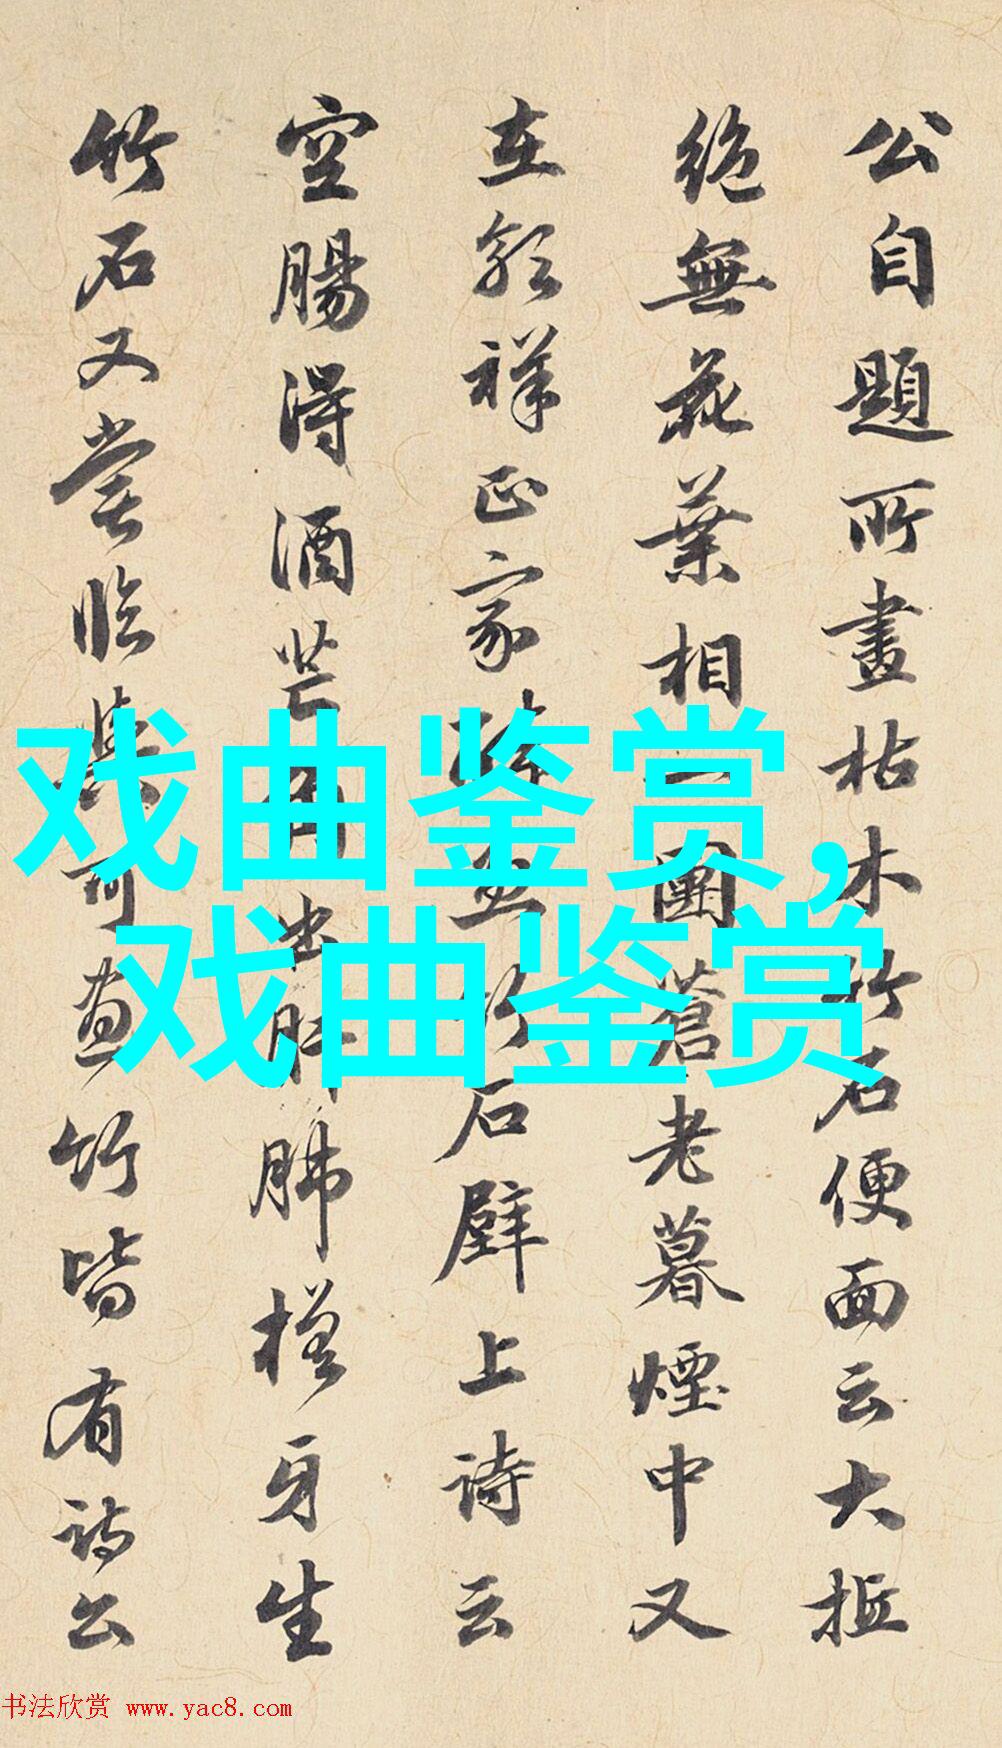 公自題所畫枯木竹石便面云大抵
絶無花葉相一團蒼老暮煙中又
在郭祥正家醉畫竹石壁上詩云
空腸得酒芒角出肝肺槎牙生
竹石又嘗臨與可畫竹皆有詩公
戏曲鉴赏，
戏曲鉴赏
书法欣赏 www.yac8.com